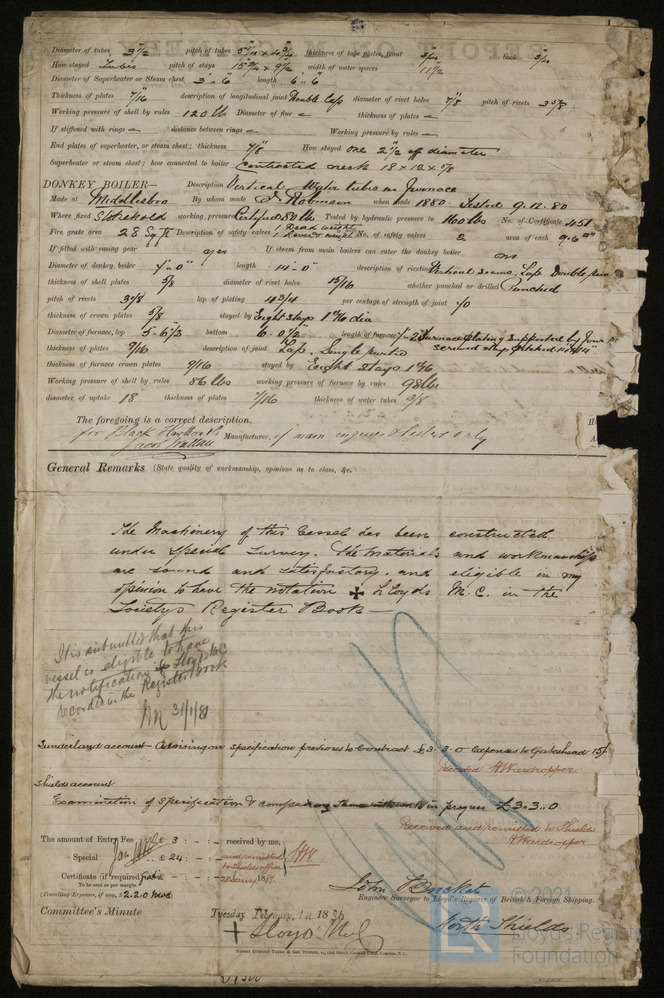 Diameter of tubes 3 1/2 pitch of tubes 5 × 4 3/4 thickness of tube plates, front back
How stayed Tubes pitch of stays 15 × 9 1/2 width of water spaces 11 1/2
Diameter of Superheater or Steam chest 3'.0"6 length 6'.6
Thickness of plates 7/16 description of longitudinal joint Double Lap diameter of rivet holes 7/8 pitch of rivets
Working pressure of shell by rules 120 lbs Diameter of flue – thickness of plates –
If stiffened with rings – distance between rings – Working pressure by rules –
End plates of superheater, or steam chest; thickness 7/8 How stayed one 2 1/2 diameter
Superheater or steam chest; how connected to boiler Contracted neck 18 × 12 × 5/8
DONKEY BOILER— Description Vertical, tubes in furnace
Made at Middlesbro By whom made Robinson when made 1880. Tested 9.12.80
Where fixed Stokehold working pressure Certified 80 lbs Tested by hydraulic pressure to 160 lbs No. of Certificate 451
Fire grate area 28 Sq ft Description of safety valves 1 Dead weight
1 Lever & weight No. of safety valves 2 area of each 9.6
If fitted with easing gear yes If steam from main boilers can enter the donkey boiler no
Diameter of donkey boiler 7'-0" length 14'-0" description of riveting Vertical seams, Lap Double
thickness of shell plates 5/8 diameter of rivet holes 15/16 whether punched or drilled Punched
pitch of rivets 3 1/8 lap of plating 4 3/4 per centage of strength of joint 70
thickness of crown plates 5/8 stayed by Eight stays dia
Diameter of furnace, top 5-6 1/2 bottom 6.0 1/2 length of furnace Furnace plating supported by
thickness of plates 9/16 description of joint Lap. Single riveted screwed stays pitched
thickness of furnace crown plates 9/16 stayed by Eight stays
Working pressure of shell by rules 86 lbs working pressure of furnace by rules 98 lbs
diameter of uptake 18" thickness of plates 7/16 thickness of water tubes 3/8
The foregoing is a correct description,
for Black Hawthorn
Manufacturer, of main engines & boilers only
General Remarks (State quality of workmanship, opinions as to class, &c.
The Machinery of this Vessel has been constructed
under Special Survey. The materials and workmanship
are sound and satisfactory, and eligible in my
opinion to have the notation ✠ Lloyds M.C. in the
Societys Register Book—
It is submitted that this
vessel is eligible to have
the notification ✠ Lloyds M.C.
recorded in the Register Book
31/1/81
Sunderland account - Advising on specification previous to Contract £3.3.0 expenses to Gateshead 15/
Received H Wardropper
Shields account
Examination of Specification & comparing same with work in progress £3.3.0
Received and remitted to Shields
H Wardropper
The amount of Entry Fee £ 3 : - : - received by me,
Special £ 24 : - : - and remitted
to Shields office
Certificate (if required) : - : - 28 Jany 1881
To be sent as per margin.
(Travelling Expenses, if any, £ 2.2.0
Engineer Surveyor to Lloyd's Register of British & Foreign Shipping.
North Shields
Committee's Minute Tuesday February, 1st 1881
+ Lloyds M.C.
© 2021
Lloyd's Register
Foundation